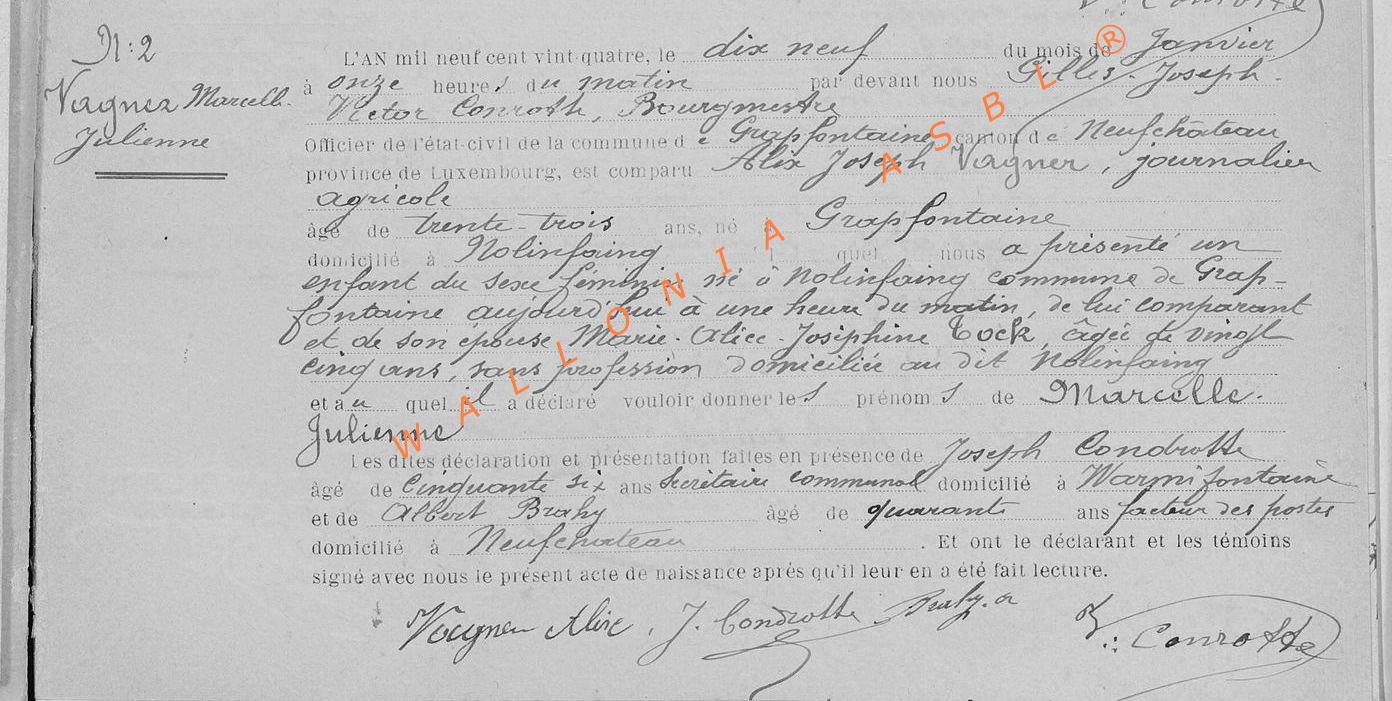 N: 2
Vagner Marcelle
Julienne
L'AN mil neuf cent vint-quatre, le dix neuf du mois de Janvier
à onze heures du matin par devant nous Gilles-Joseph-
Victor Conrotte, Bourgmestre
Officier de l'état-civil de la commune de Grapfontaine canton de Neufchâteau
province de Luxembourg, est comparu Alix Joseph Vagner, journalier
agricole
âgé de trente-trois ans, né à Grapfontaine
domicilié à Nolinfaing l quel nous a présenté un
enfant du sexe féminin né à Nolinfaing commune de Grap=
fontaine aujourd'hui à une heure du matin, de lui comparant
et de son épouse Marie-Alice-Joséphine Tock, âgée de vingt
cinq ans, sans profession domiciliée au dit Nolinfaing
et au quel il a déclaré vouloir donner les prénoms de Marcelle-
Julienne
Les dites déclaration et présentation faites en présence de Joseph Condrotte
âgé de Cinquante six ans secrétaire communal domicilié à Warmifontaine
et de Albert Brahy âgé de quarante ans facteur des postes
domicilié à Neufchateau. Et ont le déclarant et les témoins
signé avec nous le présent acte de naissance après qu'il leur en a été fait lecture.
Vagner Alix. J. Condrotte Brahy. a V: Conrotte
WALLONIA ASBL ®